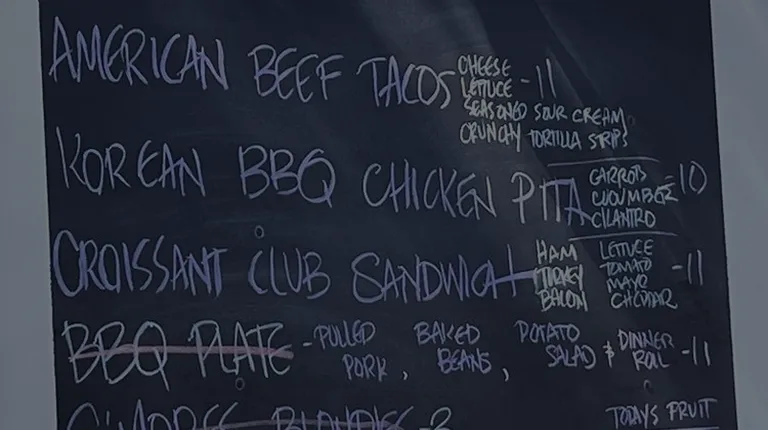 AMERICAN BEEF TACOS CHEESE - 11
LETTUCE
SEASONED SOUR CREAM
CRUNCHY TORTILLA STRIPS
KOREAN BBQ CHICKEN PITA CARROTS - 10
CUCUMBER
CILANTRO
CROISSANT CLUB SANDWICH HAM LETTUCE - 11
TURKEY TOMATO
BACON MAYO
CHEDDAR
BBQ PLATE - PULLED BAKED POTATO & DINNER - 11
PORK, BEANS, SALAD ROLL
BLONDIES - 2
TODAYS FRUIT